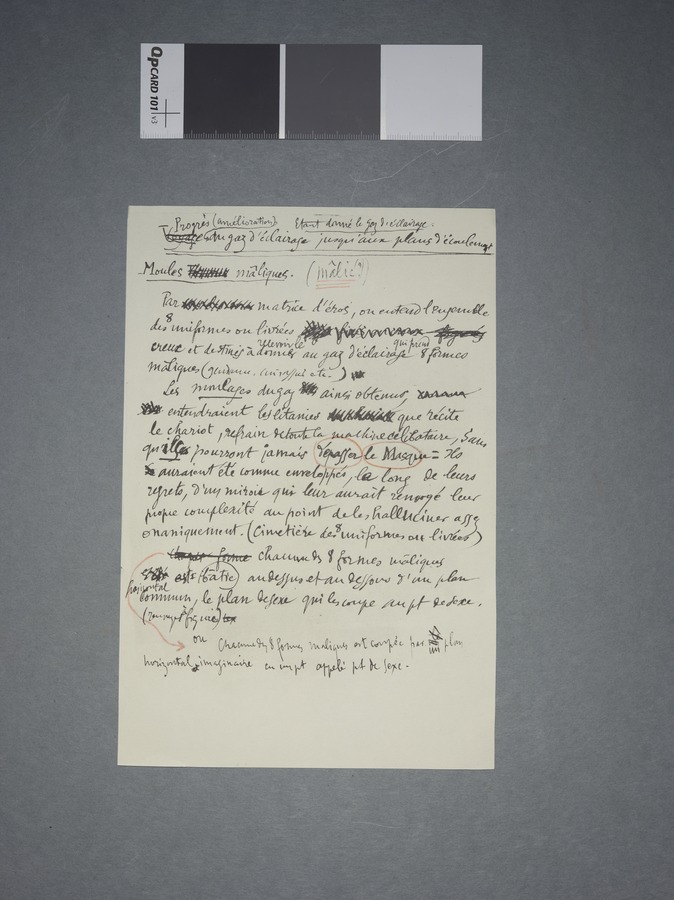 QPCARD 101 v3
— Progrès (amélioration) Etant donné le gaz d'éclairage.
du gaz d'éclairage jusqu'aux plans d'écoulement
Moules mâliques. (mâlic?)
Par matrice d'éros, on entend l'ensemble
des 8 uniformes ou livrées
creux et destinés à donner au gaz d'éclairage qui prend 8 formes
mâliques (gendarme, cuirassier etc.)
Les moulages du gaz ainsi obtenus,
entendraient les litanies que récite
le chariot, refrain de toute la machine célibataire, Sans
qu'ils pourront jamais dépasser le Masque = Ils
auraient été comme enveloppés, le long de leurs
regrets, d'un miroir qui leur aurait renvoyé leur
propre complexité au point de les halluciner assez
onaniquement. (Cimetière des 8 uniformes ou livrées)
forme chacune des 8 formes mâliques
est (bâtie) au dessus et au dessous d'un plan
horizontal
commun, le plan de sexe qui les coupe au pt de sexe.
(renvoyer à figure)
ou Chacune des 8 formes maliques est coupée par plan
horizontal imaginaire en un pt appelé pt de sexe.